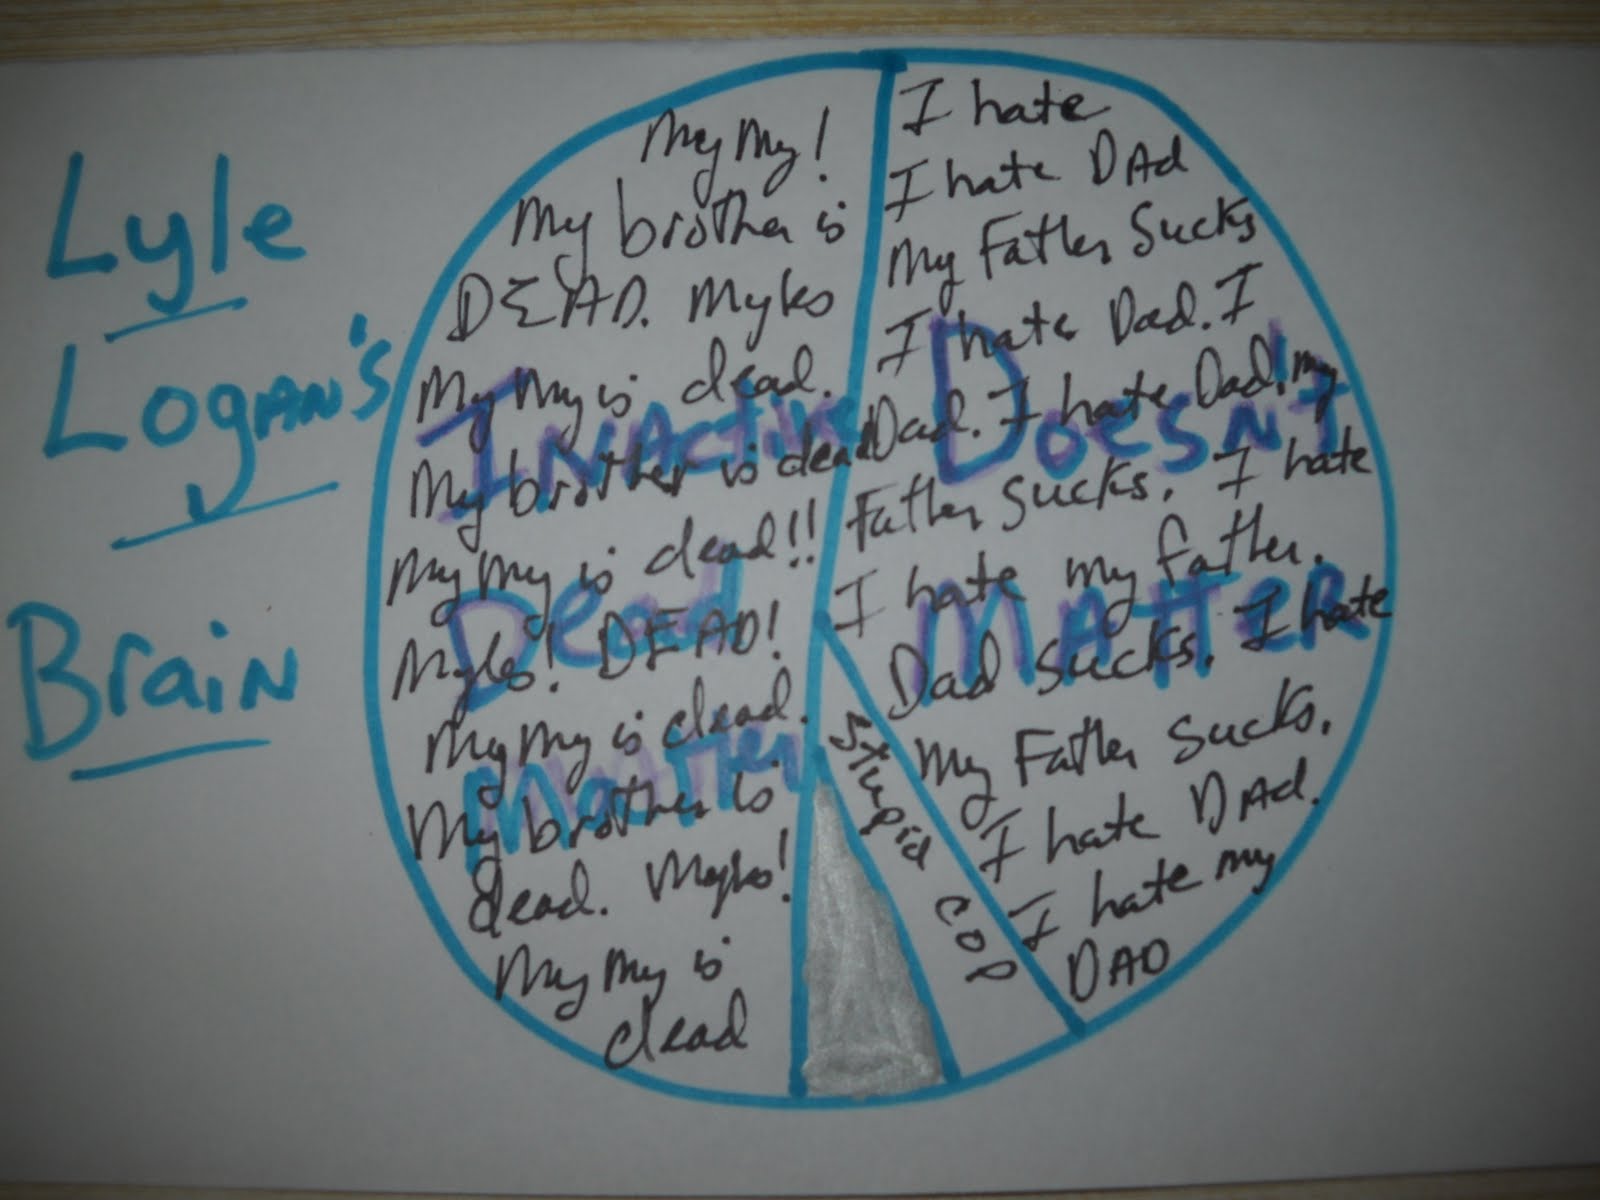 Lyle
Logan's
Brain
My My!
My brother is
DEAD. Myles
My My is dead.
My brother is dead
My My is dead!!
Myles! DEAD!
My My is dead.
My brother is
dead. Myles!
My My is
dead
Inactive
Dead
Matter
I hate
I hate DAd
My Father Sucks
I hate Dad. I
Dad. I hate Dad! my
Father sucks. I hate
I hate my father.
Dad sucks. I hate
My Father sucks.
I hate DAd.
I hate my
DAD
Doesn't
Matter
stupid cop